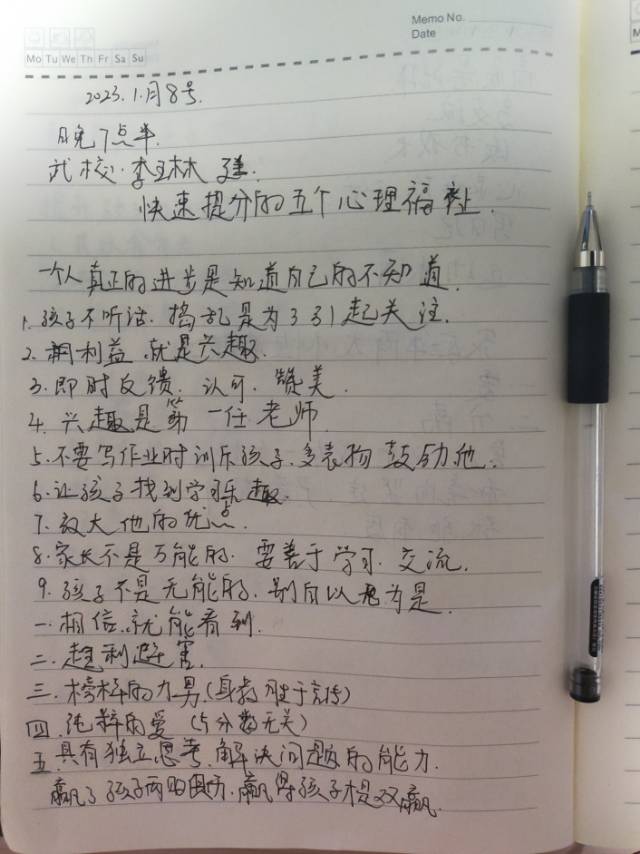 Memo No.
Date
Mo Tu We Th Fr Sa Su
2023.1.月8号.
晚7点半.
武校·李玉林
快速提分的五个心理福祉.
一个人真正的进步是知道自己的不知道.
1.孩子不听话.捣乱是为了引起关注.
2.用利益.就是兴趣.
3.即时反馈.认可.赞美.
4.兴趣是第一任老师.
5.不要写作业时训斥孩子.多表扬鼓励他.
6.让孩子找到学习乐趣.
7.放大他的优点.
8.家长不是万能的.要善于学习.交流.
9.孩子不是无能的.别自以为是.
一.相信.就能看到.
二.趋利避害.
三.榜样的力男(身教胜于言传)
四.纯粹的爱(与分数无关)
五.具有独立思考.解决问题的能力.
赢了孩子两败俱伤.赢得孩子是双赢.